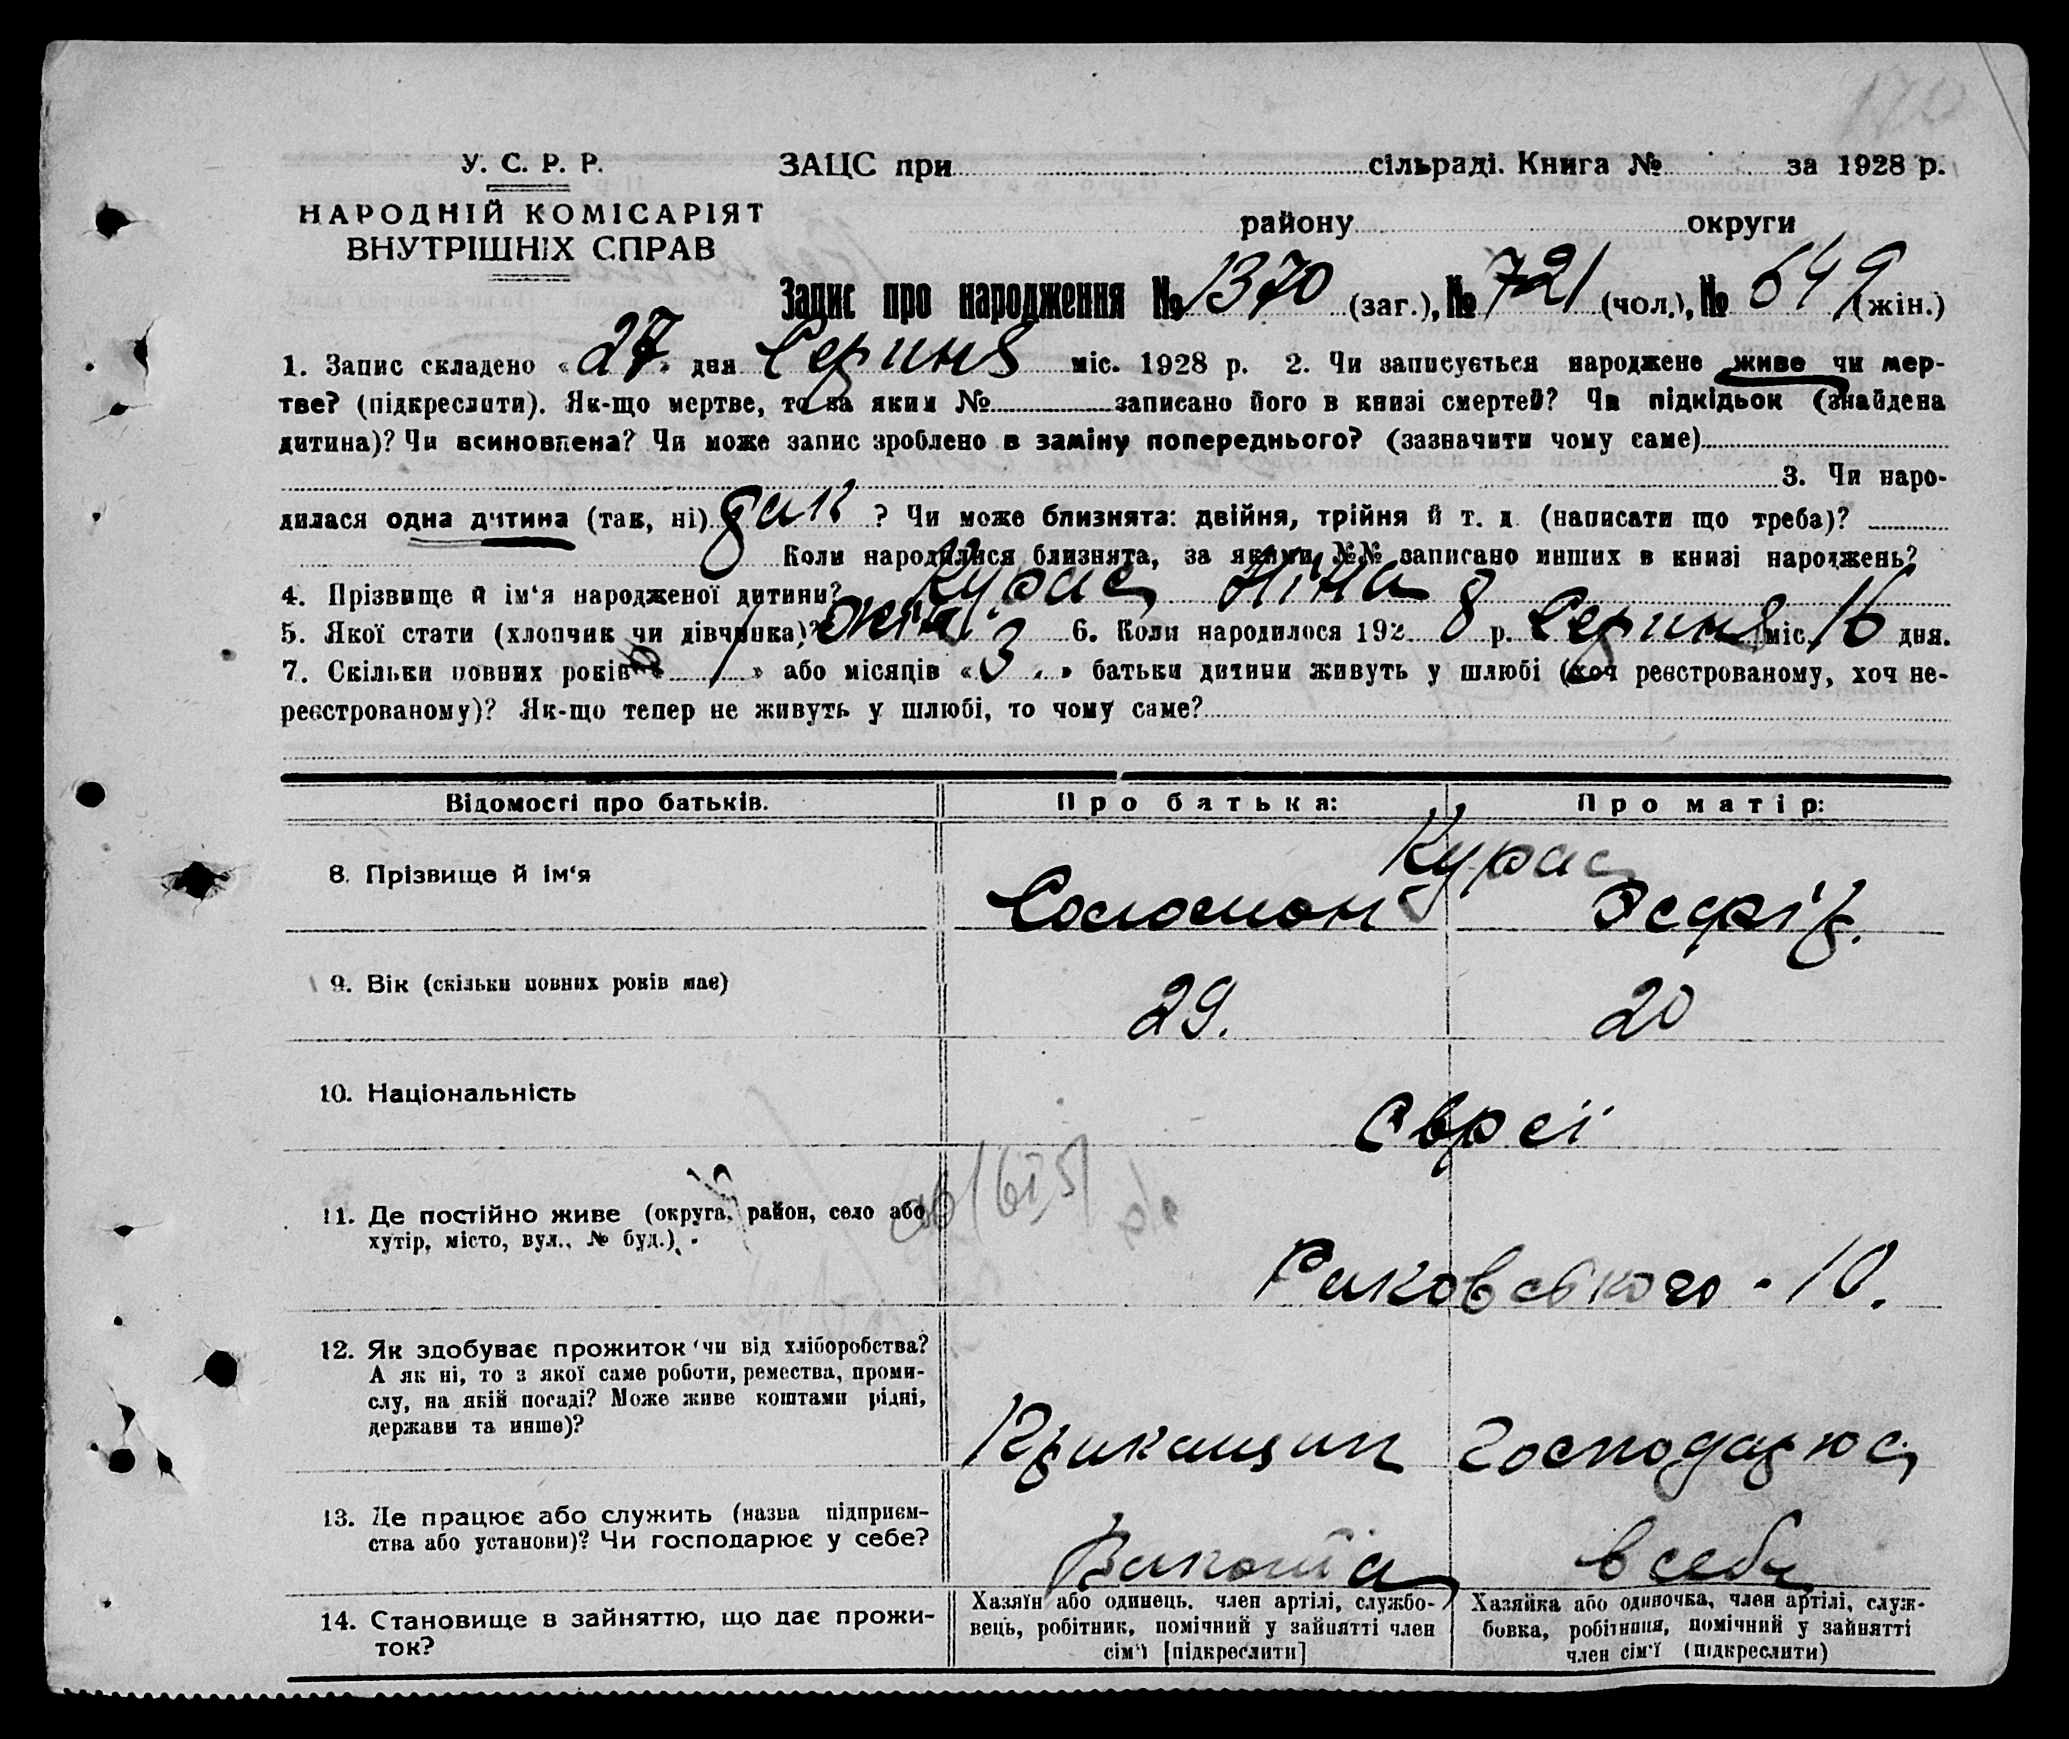 У. С. Р. Р.
ЗАЦС при сільраді. Книга № за 1928 р.
НАРОДНІЙ КОМІСАРІЯТ
ВНУТРІШНІХ СПРАВ
району округи
Запис про народження № 1370 (заг.), № 721 (чол.), № 649 (жін.)
1. Запис складено « 27 » дня Серпня міс. 1928 р. 2. Чи записується народжене живе чи мер-
тве? (підкреслити). Як-що мертве, то за яким № записано його в книзі смертей? Чи підкідьок (знайдена
дитина)? Чи всиновлена? Чи може запис зроблено в заміну попереднього? (зазначити чому саме)
3. Чи наро-
дилася одна дитина (так, ні) так ? Чи може близнята: двійня, трійня й т. д. (написати що треба)?
Коли народилися близнята, за якими №№ записано инших в книзі народжень?
4. Прізвище й ім‘я народженої дитини? Курас Ніна
5. Якої стати (хлопчик чи дівчинка)? жін. 6. Коли народилося 192 8 р. Серпня міс. 16 дня.
7. Скільки повних років « 1 » або місяців « 3 » батьки дитини живуть у шлюбі (хоч реєстрованому, хоч не-
реєстрованому)? Як-що тепер не живуть у шлюбі, то чому саме?
Відомості про батьків. Про батька: Про матір:
Курас
8. Прізвище й ім‘я Соломон Эсфір.
9. Вік (скільки повних років має) 29. 20
10. Національність Євреї
11. Де постійно живе (округа, район, село або
хутір, місто, вул., № буд.)
Раковського - 10.
12. Як здобуває прожиток (чи від хліборобства?
А як ні, то з якої саме роботи, ремества, проми-
слу, на якій посаді? Може живе коштами рідні,
держави та инше)?
Прикащик Господарює
13. Де працює або служить (назва підприєм-
ства або установи)? Чи господарює у себе?
в себе
14. Становище в зайняттю, що дає прожи-
ток?
Хазяїн або одинець, член артілі, службо-
вець, робітник, помічний у зайнятті член
сім‘ї [підкреслити]
Хазяйка або одиночка, член артілі, служ-
бовка, робітниця, помічний у зайнятті
член сім‘ї (підкреслити)